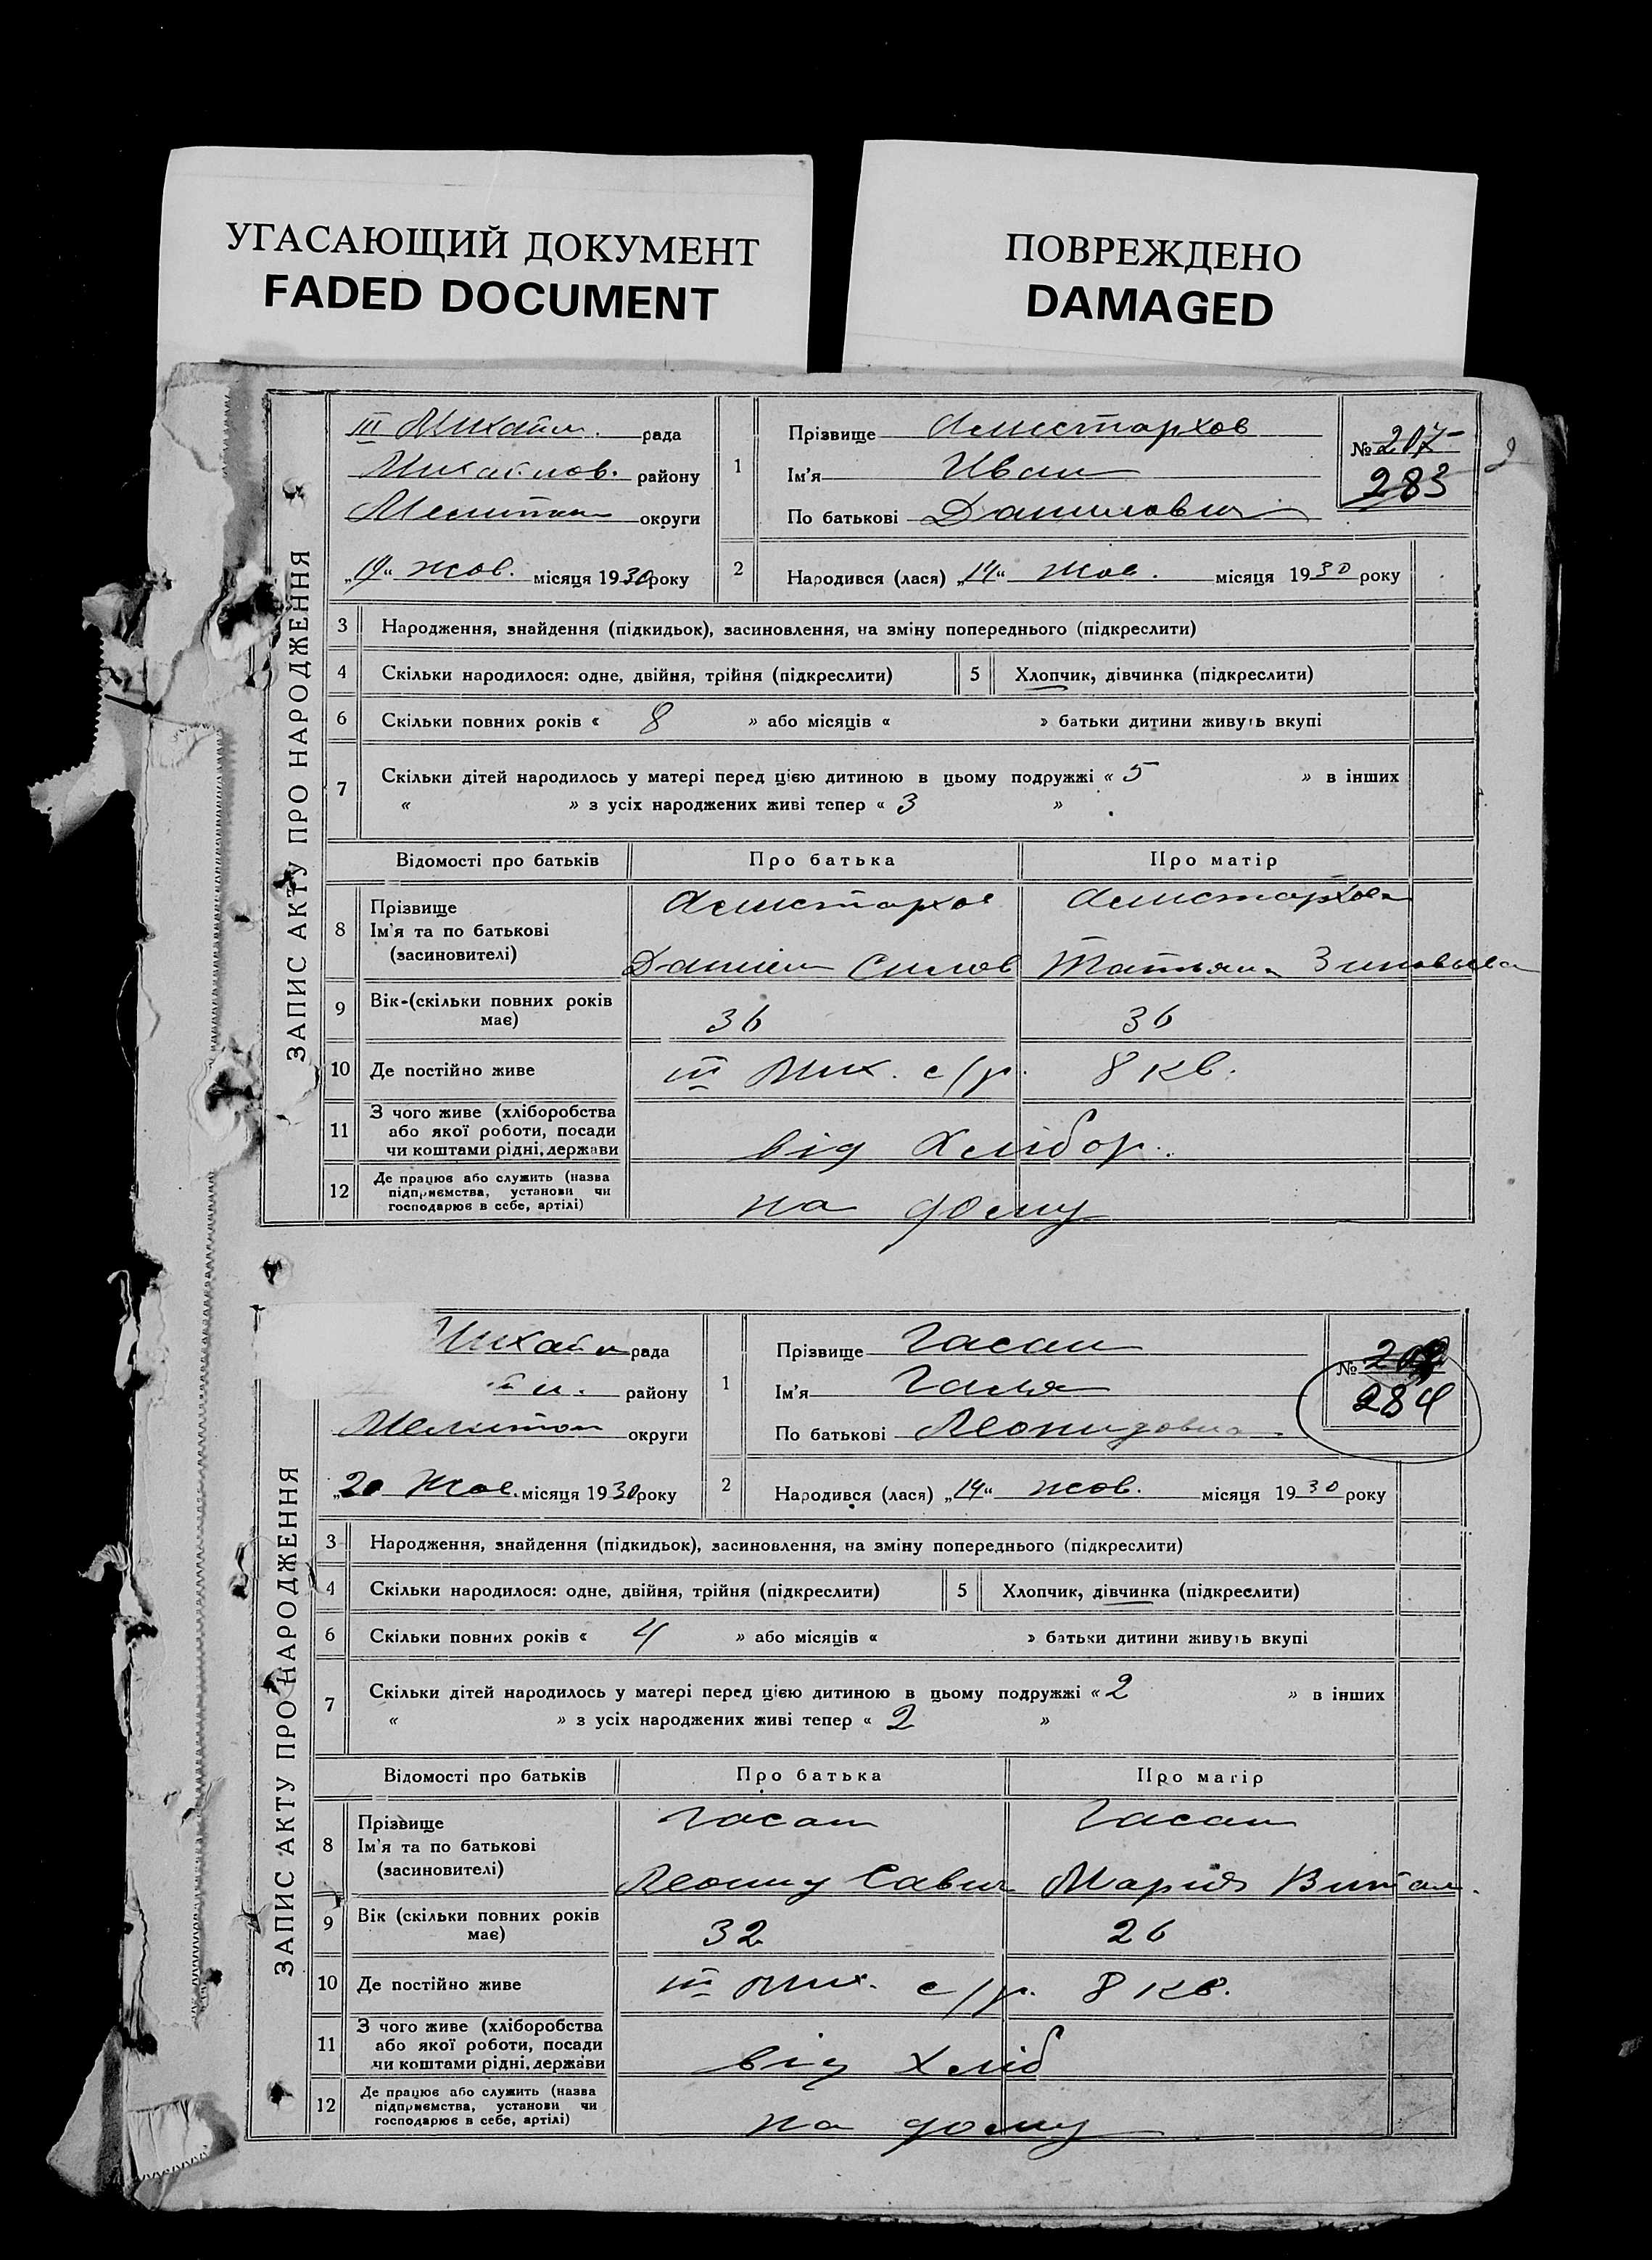 УГАСАЮЩИЙ ДОКУМЕНТ
FADED DOCUMENT
ПОВРЕЖДЕНО
DAMAGED
ЗАПИС АКТУ ПРО НАРОДЖЕННЯ
III Михайл. рада
Михайлов. району
Мелитоп округи
„19“ жов. місяця 1930 року
1 Прізвище Аристархов
Ім'я Иван
По батькові Данилович
№ 207
283
2 Народився (лася) „14“ жов. місяця 1930 року
3 Народження, знайдення (підкидьок), засиновлення, на зміну попереднього (підкреслити)
4 Скільки народилося: одне, двійня, трійня (підкреслити) 5 Хлопчик, дівчинка (підкреслити)
6 Скільки повних років « 8 » або місяців « » батьки дитини живуть вкупі
7 Скільки дітей народилось у матері перед цією дитиною в цьому подружжі « 5 » в інших
« » з усіх народжених живі тепер « 3 »
Відомості про батьків Про батька Про матір
8 Прізвище
Ім'я та по батькові
(засиновителі)
Аристархов Аристархова
Даниил Силов Татьяна Зиновьева
9 Вік (скільки повних років
має) 36 36
10 Де постійно живе III Мих. с/р. 8 кв.
11 З чого живе (хліборобства
або якої роботи, посади
чи коштами рідні, держави
від хлібор.
12 Де працює або служить (назва
підприємства, установи чи
господарює в себе, артілі)
на дому
ЗАПИС АКТУ ПРО НАРОДЖЕННЯ
Михайл рада
району
Мелитоп округи
„20 Жов. місяця 1930 року
1 Прізвище Гасан
Ім'я Галя
По батькові Леонидовна
№
284
2 Народився (лася) „14“ жов. місяця 1930 року
3 Народження, знайдення (підкидьок), засиновлення, на зміну попереднього (підкреслити)
4 Скільки народилося: одне, двійня, трійня (підкреслити) 5 Хлопчик, дівчинка (підкреслити)
6 Скільки повних років « 4 » або місяців « » батьки дитини живуть вкупі
7 Скільки дітей народилось у матері перед цією дитиною в цьому подружжі « 2 » в інших
« » з усіх народжених живі тепер « 2 »
Відомості про батьків Про батька Про матір
8 Прізвище
Ім'я та по батькові
(засиновителі)
Гасан Гасан
Леонид Савич Мария Витал.
9 Вік (скільки повних років
має) 32 26
10 Де постійно живе III Мих. с/р. 8 кв.
11 З чого живе (хліборобства
або якої роботи, посади
чи коштами рідні, держави
від хліб
12 Де працює або служить (назва
підприємства, установи чи
господарює в себе, артілі)
на дому